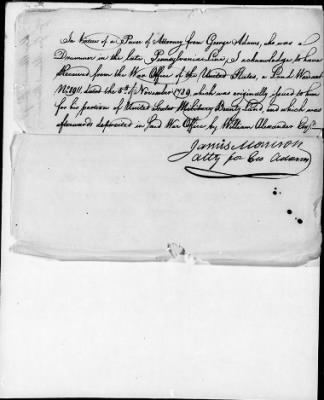 In Virtue of a Power of Attorney from George Adams, who was a
Drummer in the late Pennsylvania Line, I acknowledge to have
Received from the War Office of the United States, a Land Warrant
No. 8911. dated the 5th of November 1789 which was originally issued to him
for his portion of United States Military Bounty Land, and which was
afterwards deposited in said War Office, by William Alexander Esqr.
James Morrison
atty for Geo Adams